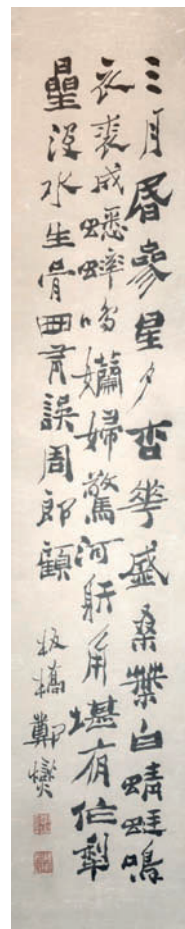 三月昏參星夕杏華盛桑葉白蜻蜓鳴
衣裘成蟋蟀鳴嬾婦驚河射角堪夜作犁
星沒水生骨曲有誤周郎顧
板橋鄭燮